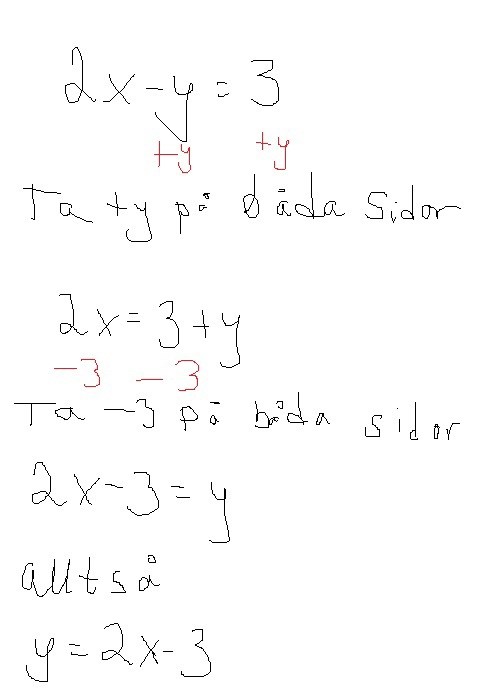 2x - y = 3
+y +y
Ta +y på båda sidor
2x = 3 + y
-3 -3
Ta -3 på båda sidor
2x - 3 = y
alltså
y = 2x - 3